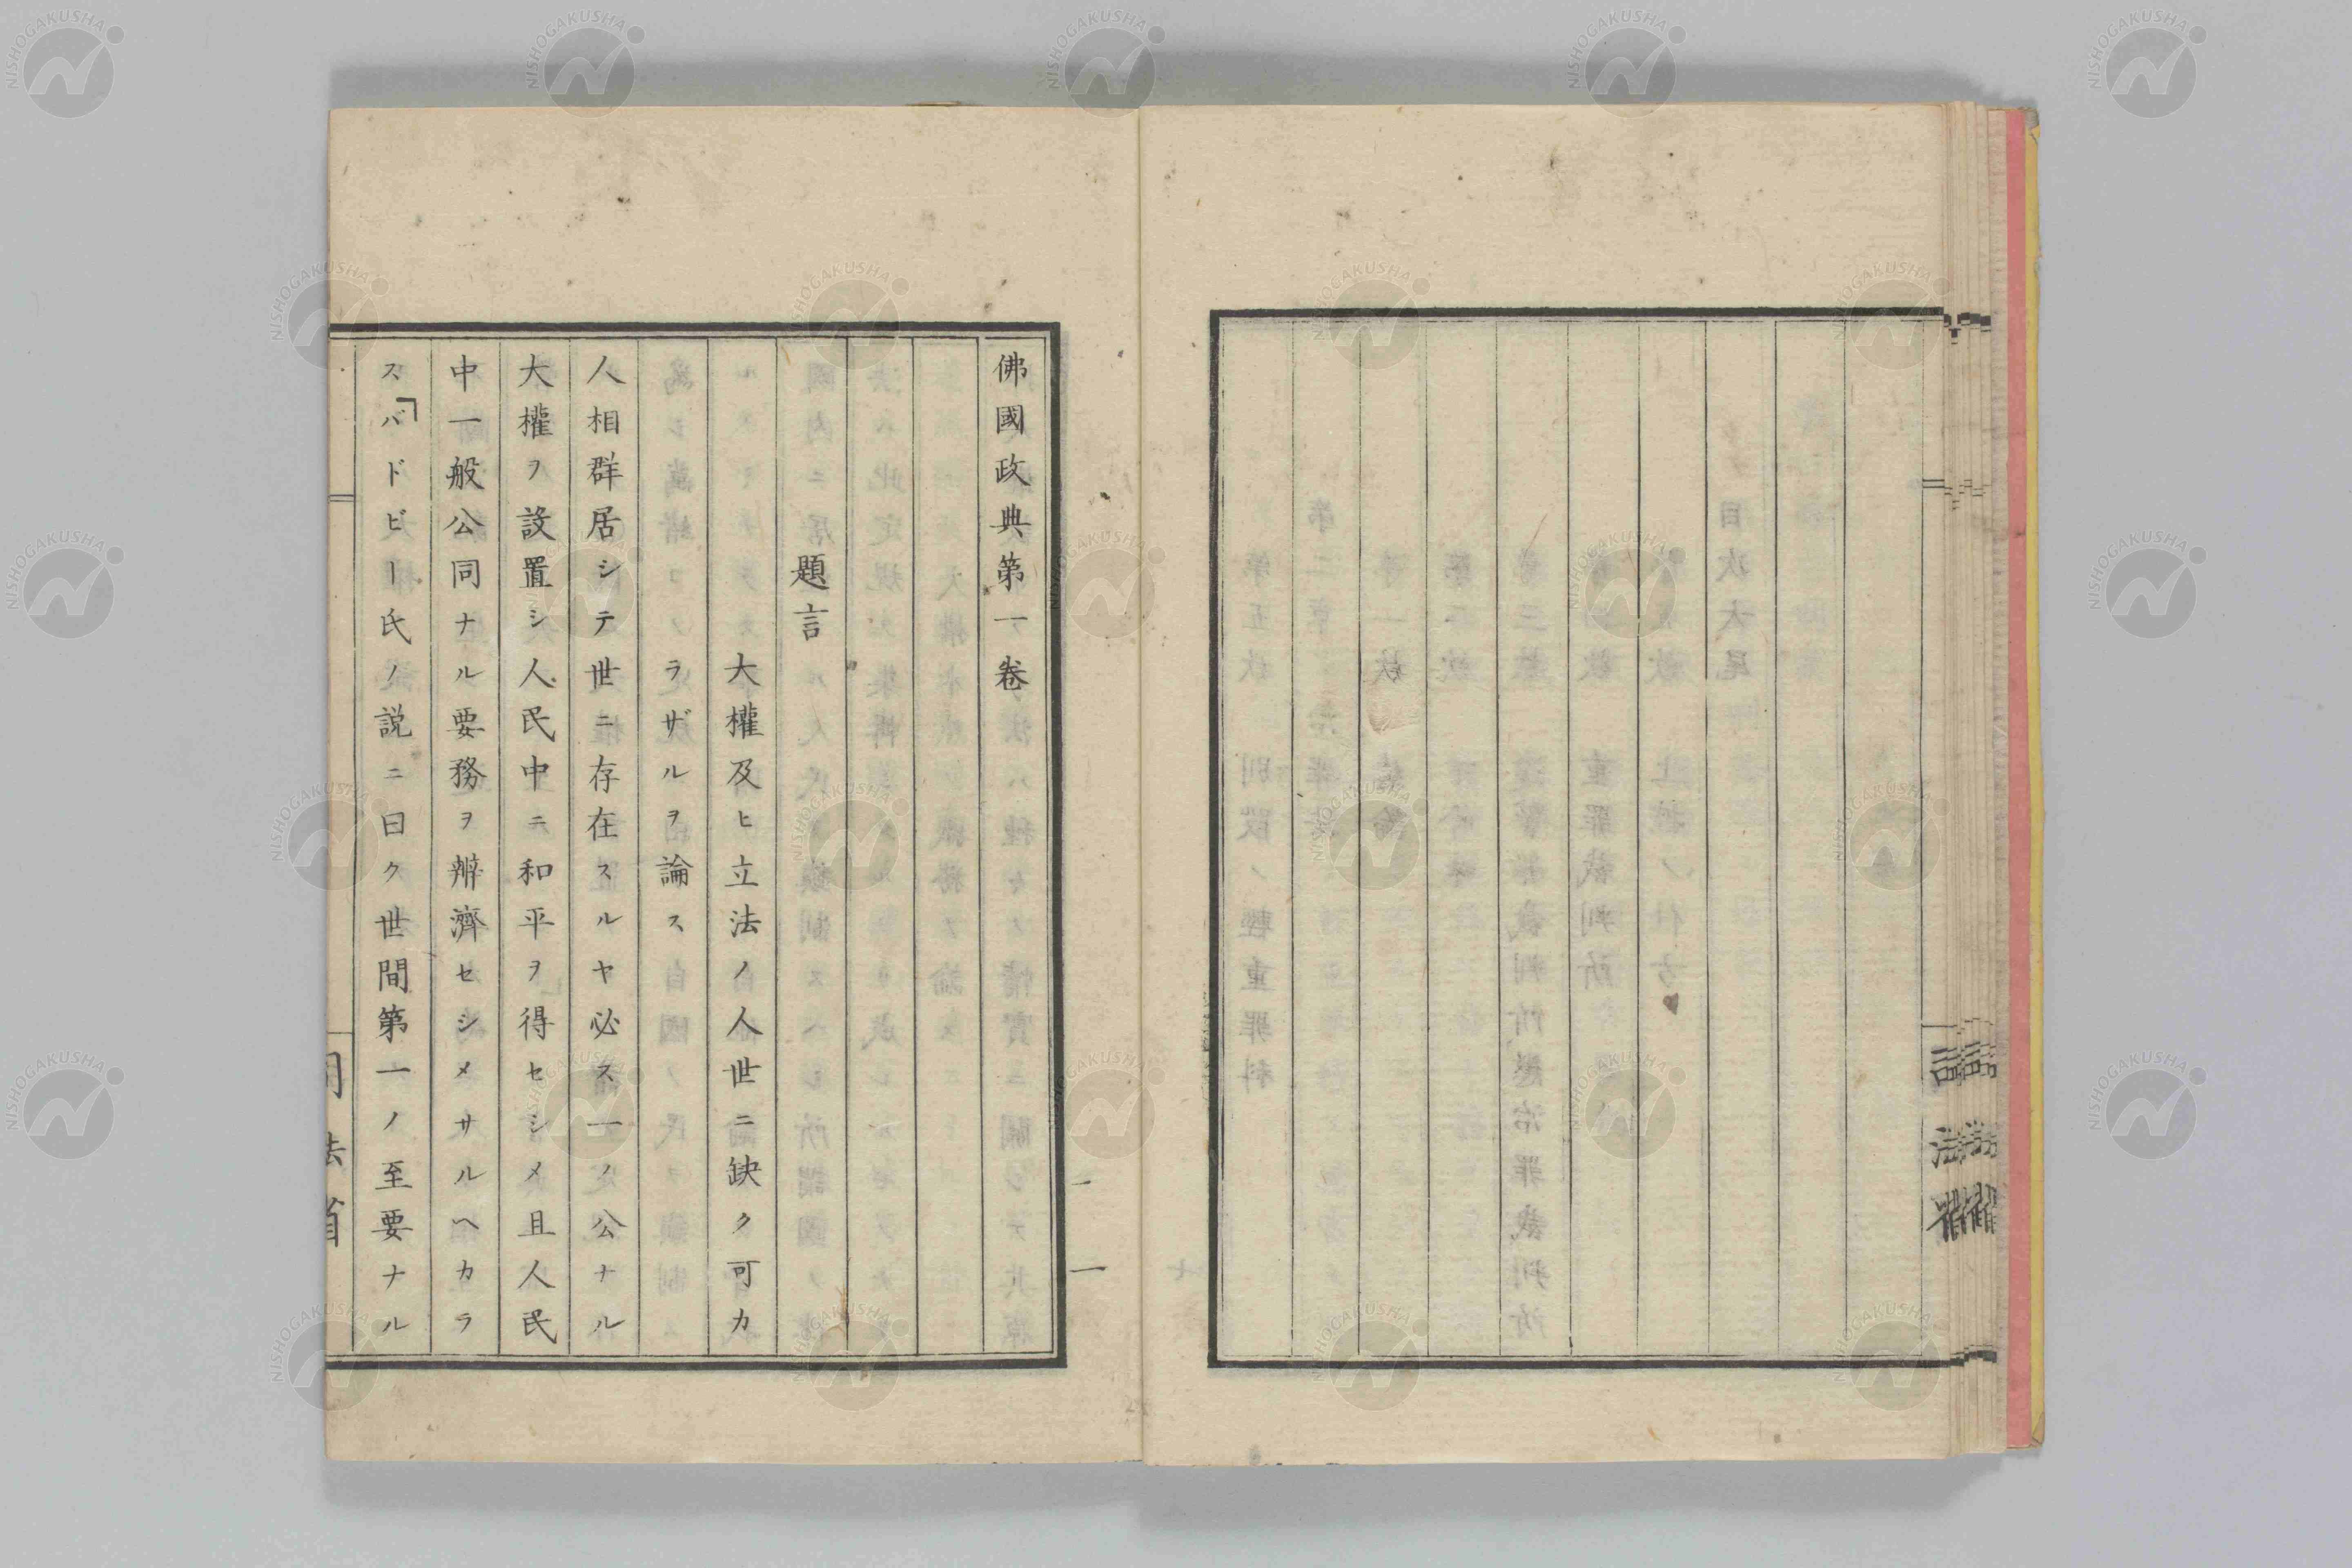 佛國政典第一卷
題言
大權及ヒ立法ノ人世ニ缺ク可カ
ラザルヲ論ス
人相群居シテ世ニ存在スルヤ必ス一ノ公ナル
大權ヲ設置シ人民中ニ和平ヲ得セシメ且人民
中一般公同ナル要務ヲ辨濟セシメサルヘカラ
ス「バドビー氏ノ説ニ曰ク世間第一ノ至要ナル
法省
一
NISHOGAKUSHA